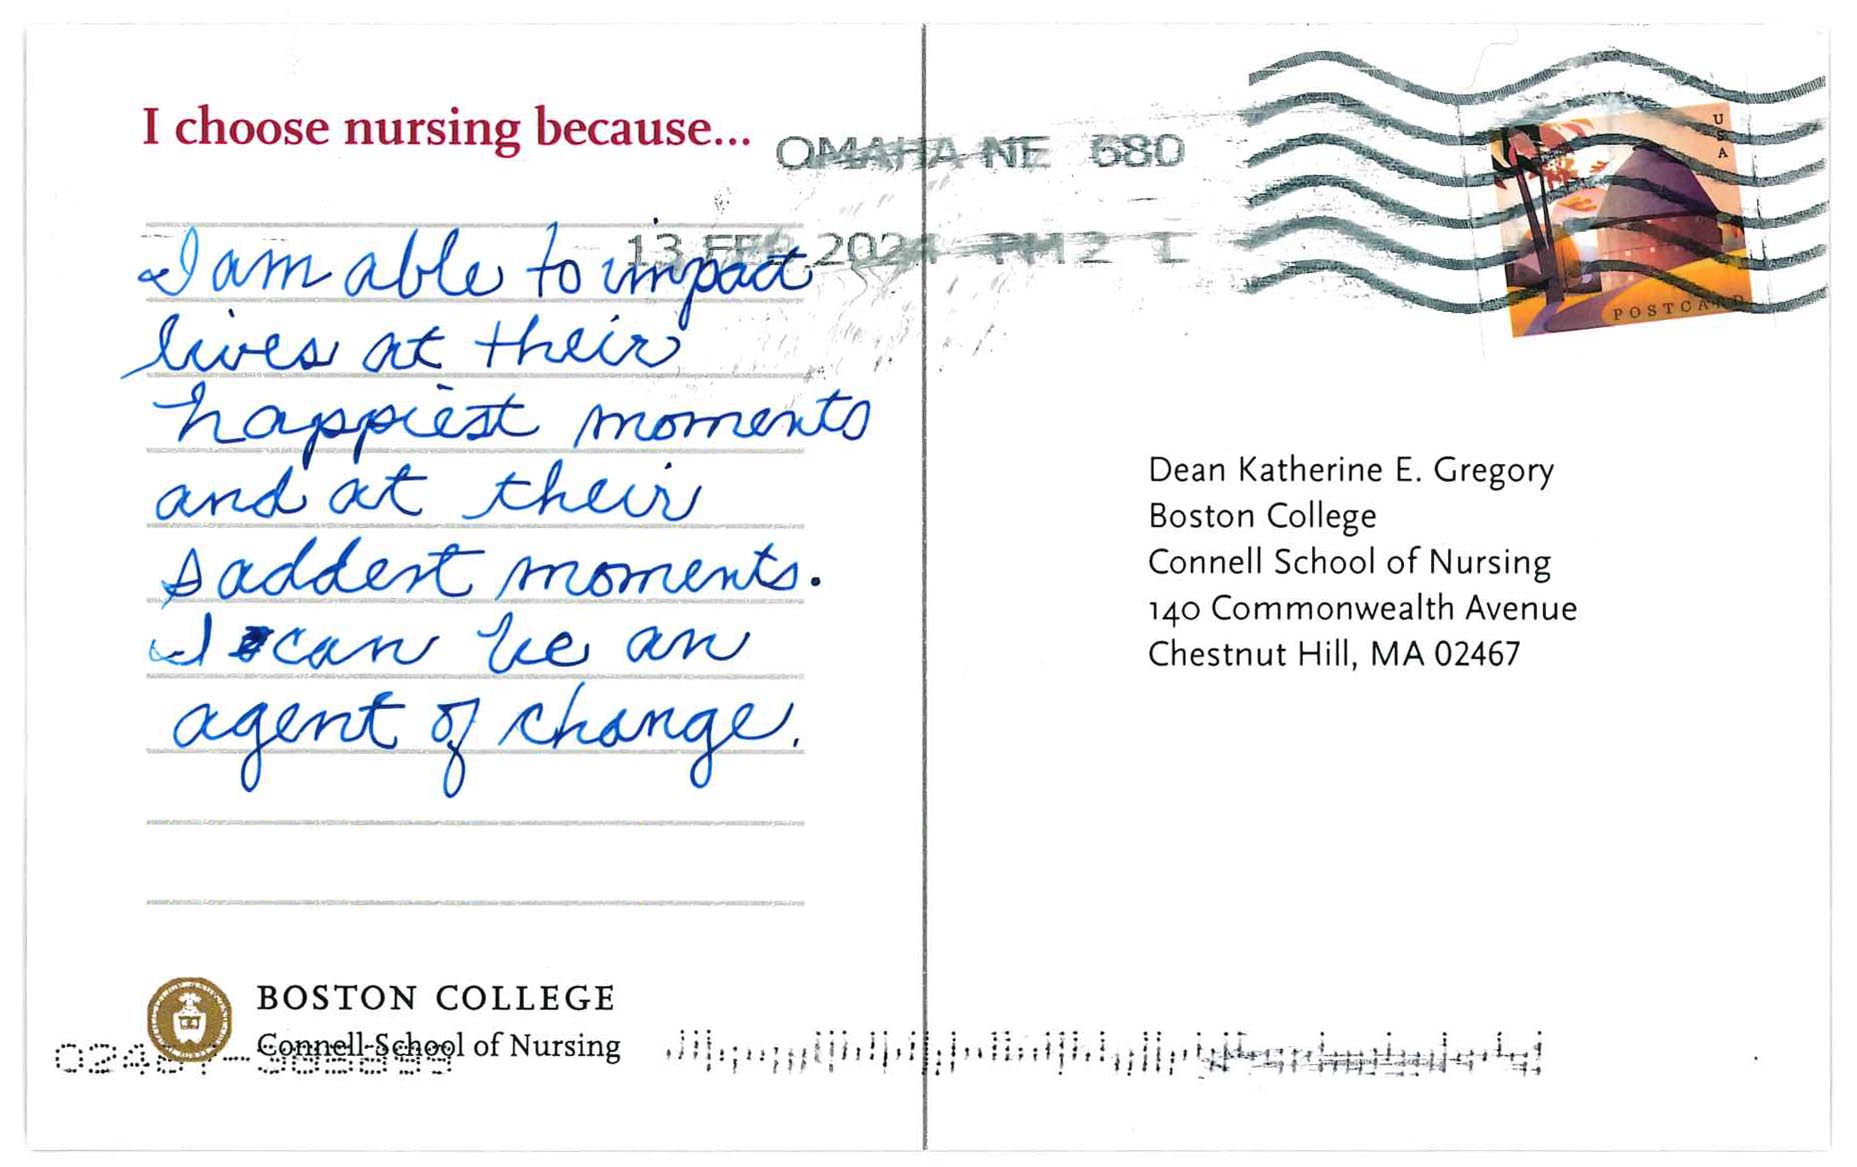 I choose nursing because...
OMAHA NE 680
13 FEB 2024 PM 2 L
I am able to impact
lives at their
happiest moments
and at their
saddest moments.
I can be an
agent of change.
USA
POSTCARD
Dean Katherine E. Gregory
Boston College
Connell School of Nursing
140 Commonwealth Avenue
Chestnut Hill, MA 02467
BOSTON COLLEGE
Connell School of Nursing